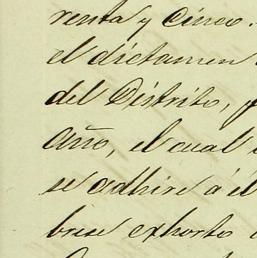 renta y cinco.
el dictamen
del Distrito,
año, el cual
se adhire á él
brese exhorto